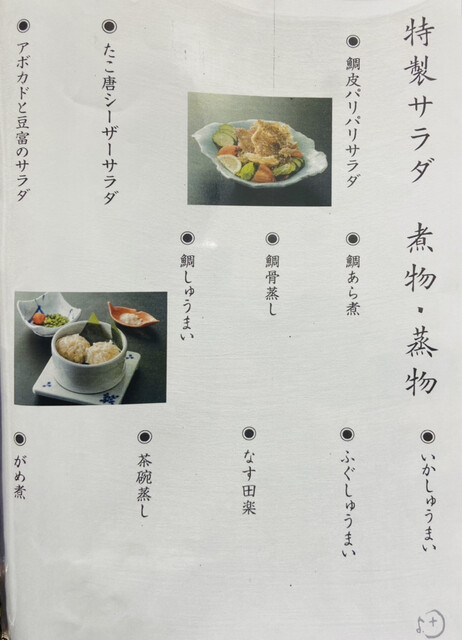 特製サラダ 煮物・蒸物
鯛皮パリパリサラダ
たこ唐シーザーサラダ
アボカドと豆富のサラダ
鯛あら煮
鯛骨蒸し
鯛しゅうまい
いかしゅうまい
ふぐしゅうまい
なす田楽
茶碗蒸し
がめ煮